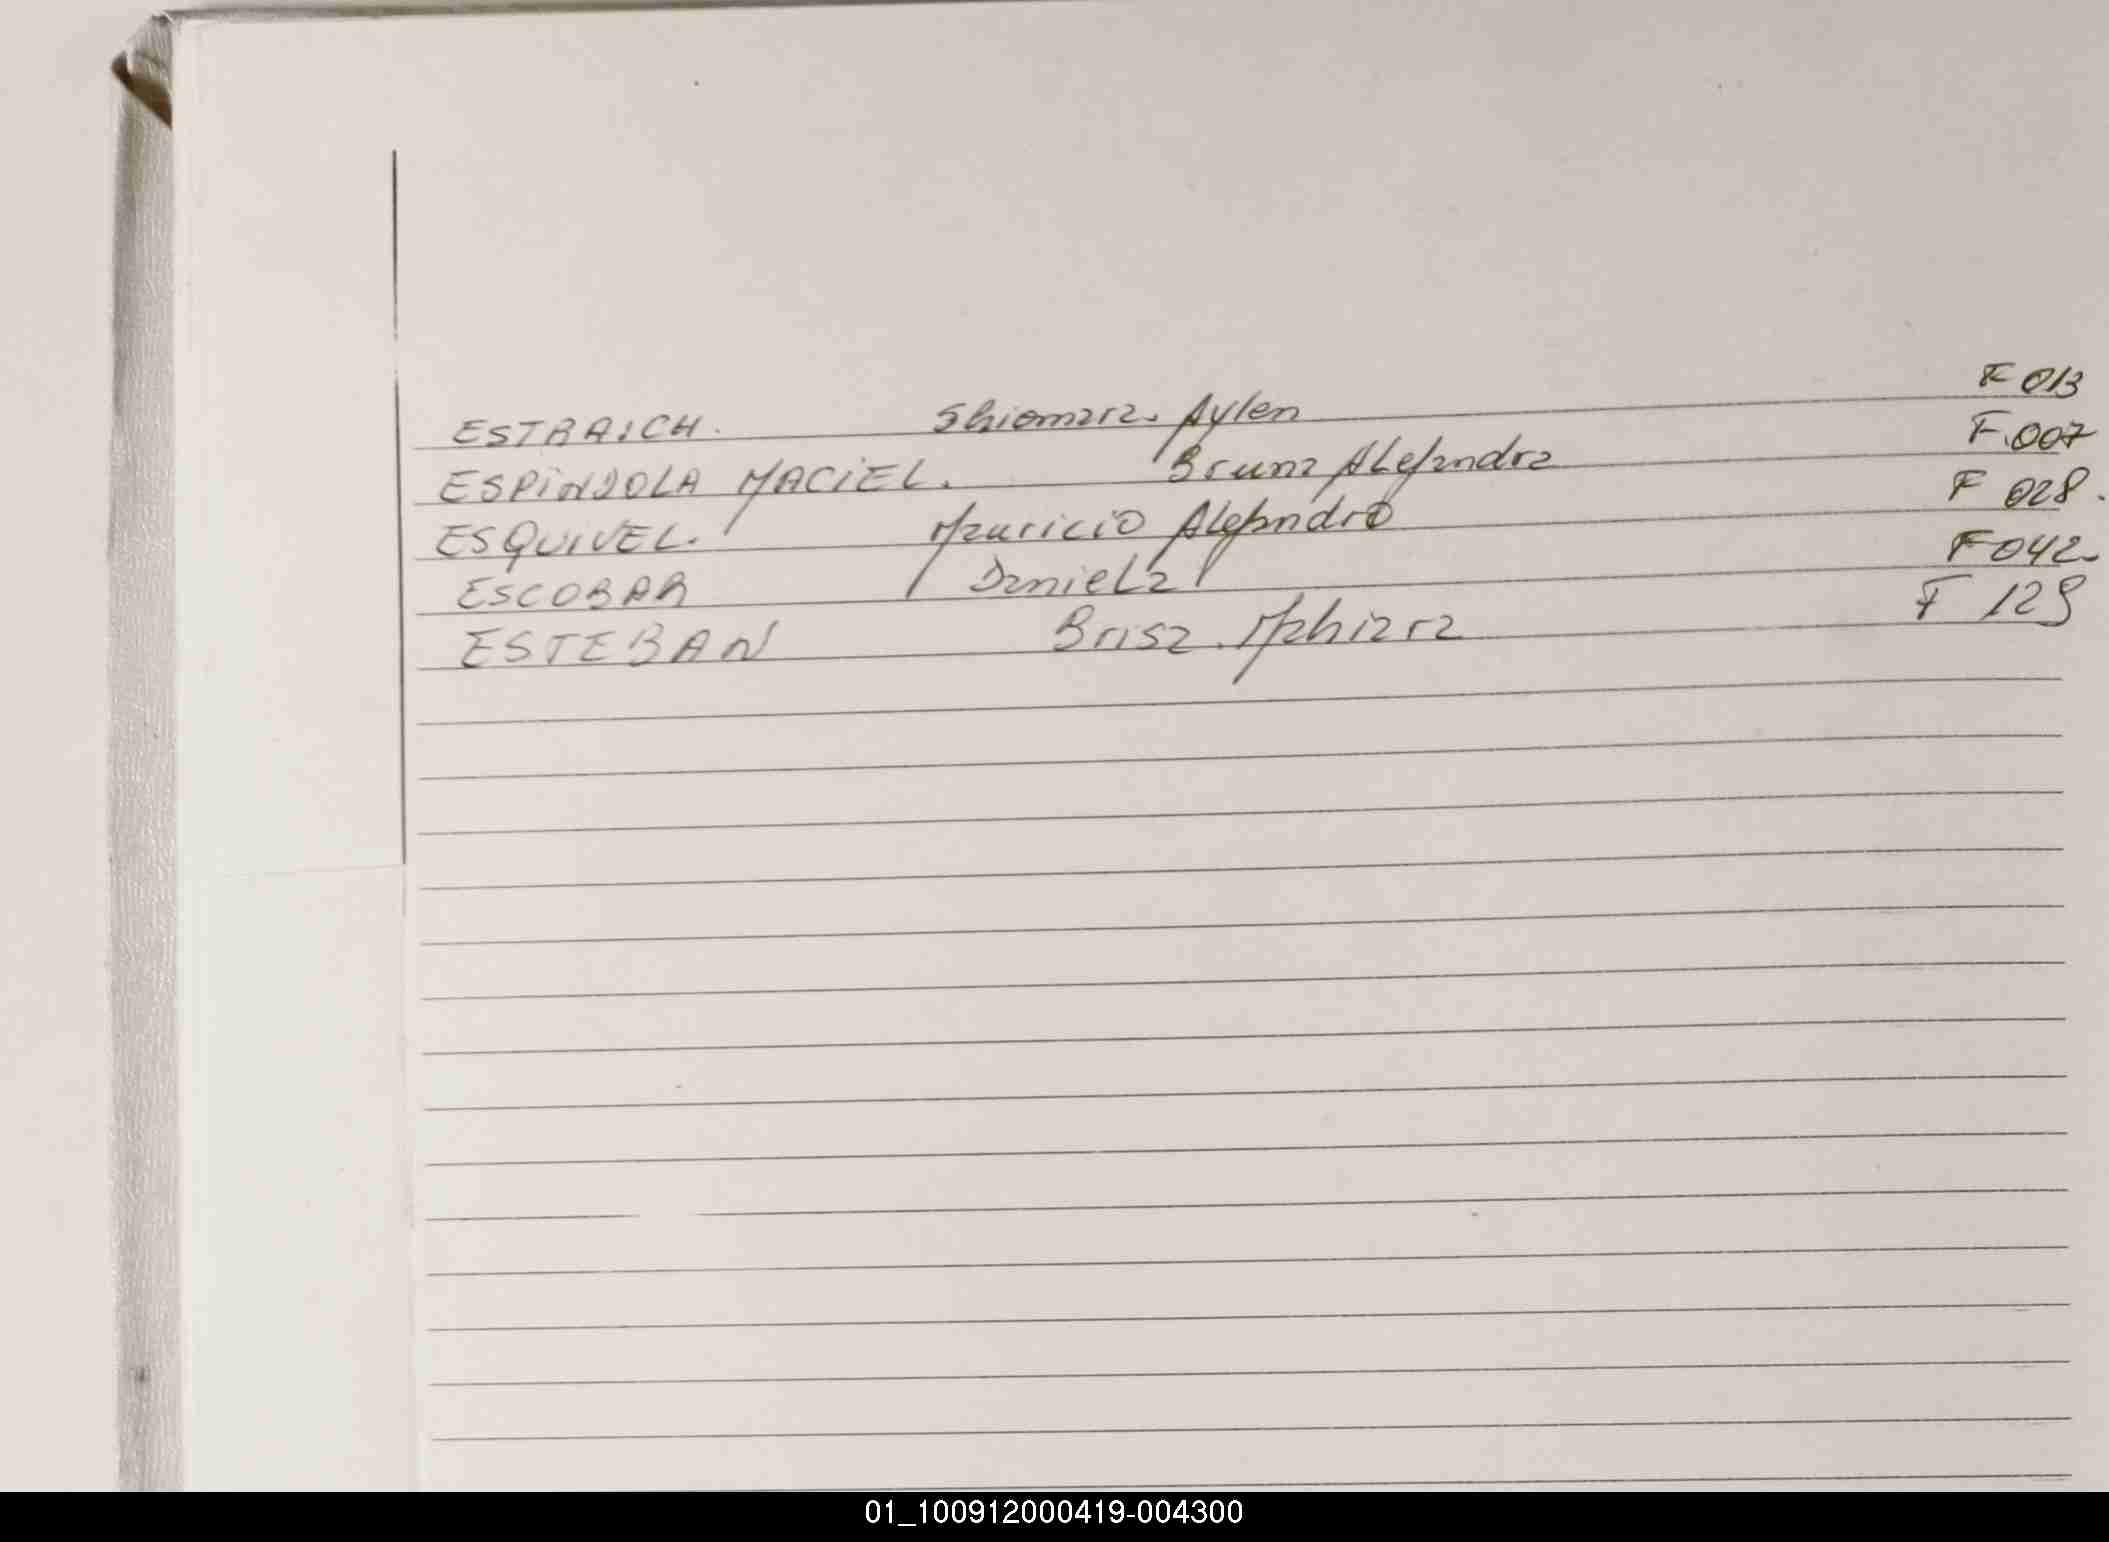 ESTRAICH. Shiomara. Aylen F 013
ESPiNDOLA MACiEL. Bruna Alejandra F.007
ESQUiVEL. Mauricio Alejandro F 028.
ESCOBAR Daniela F 042.
ESTEBAN Brisa. Mahiara F 129
01_100912000419-004300